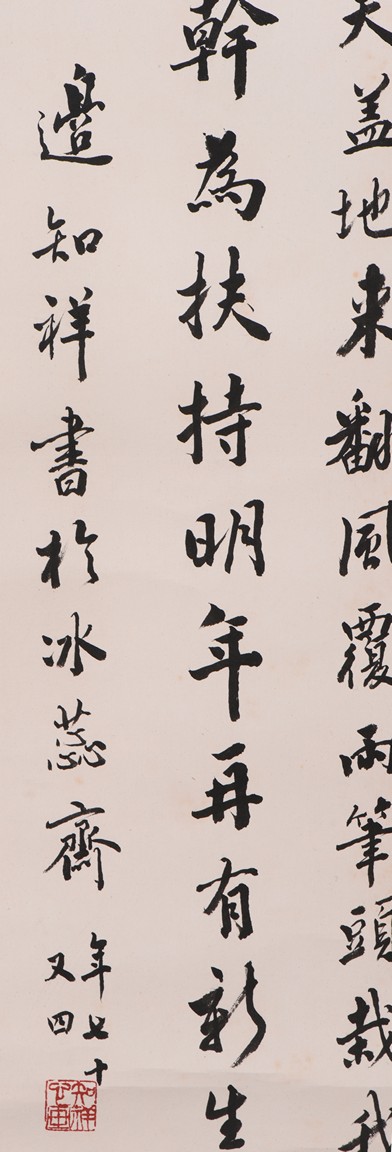 天盖地来翻風覆雨筆頭栽我
幹為扶持明年再有新生
邊知祥書於冰蕊齋
年七十
又四
知祥